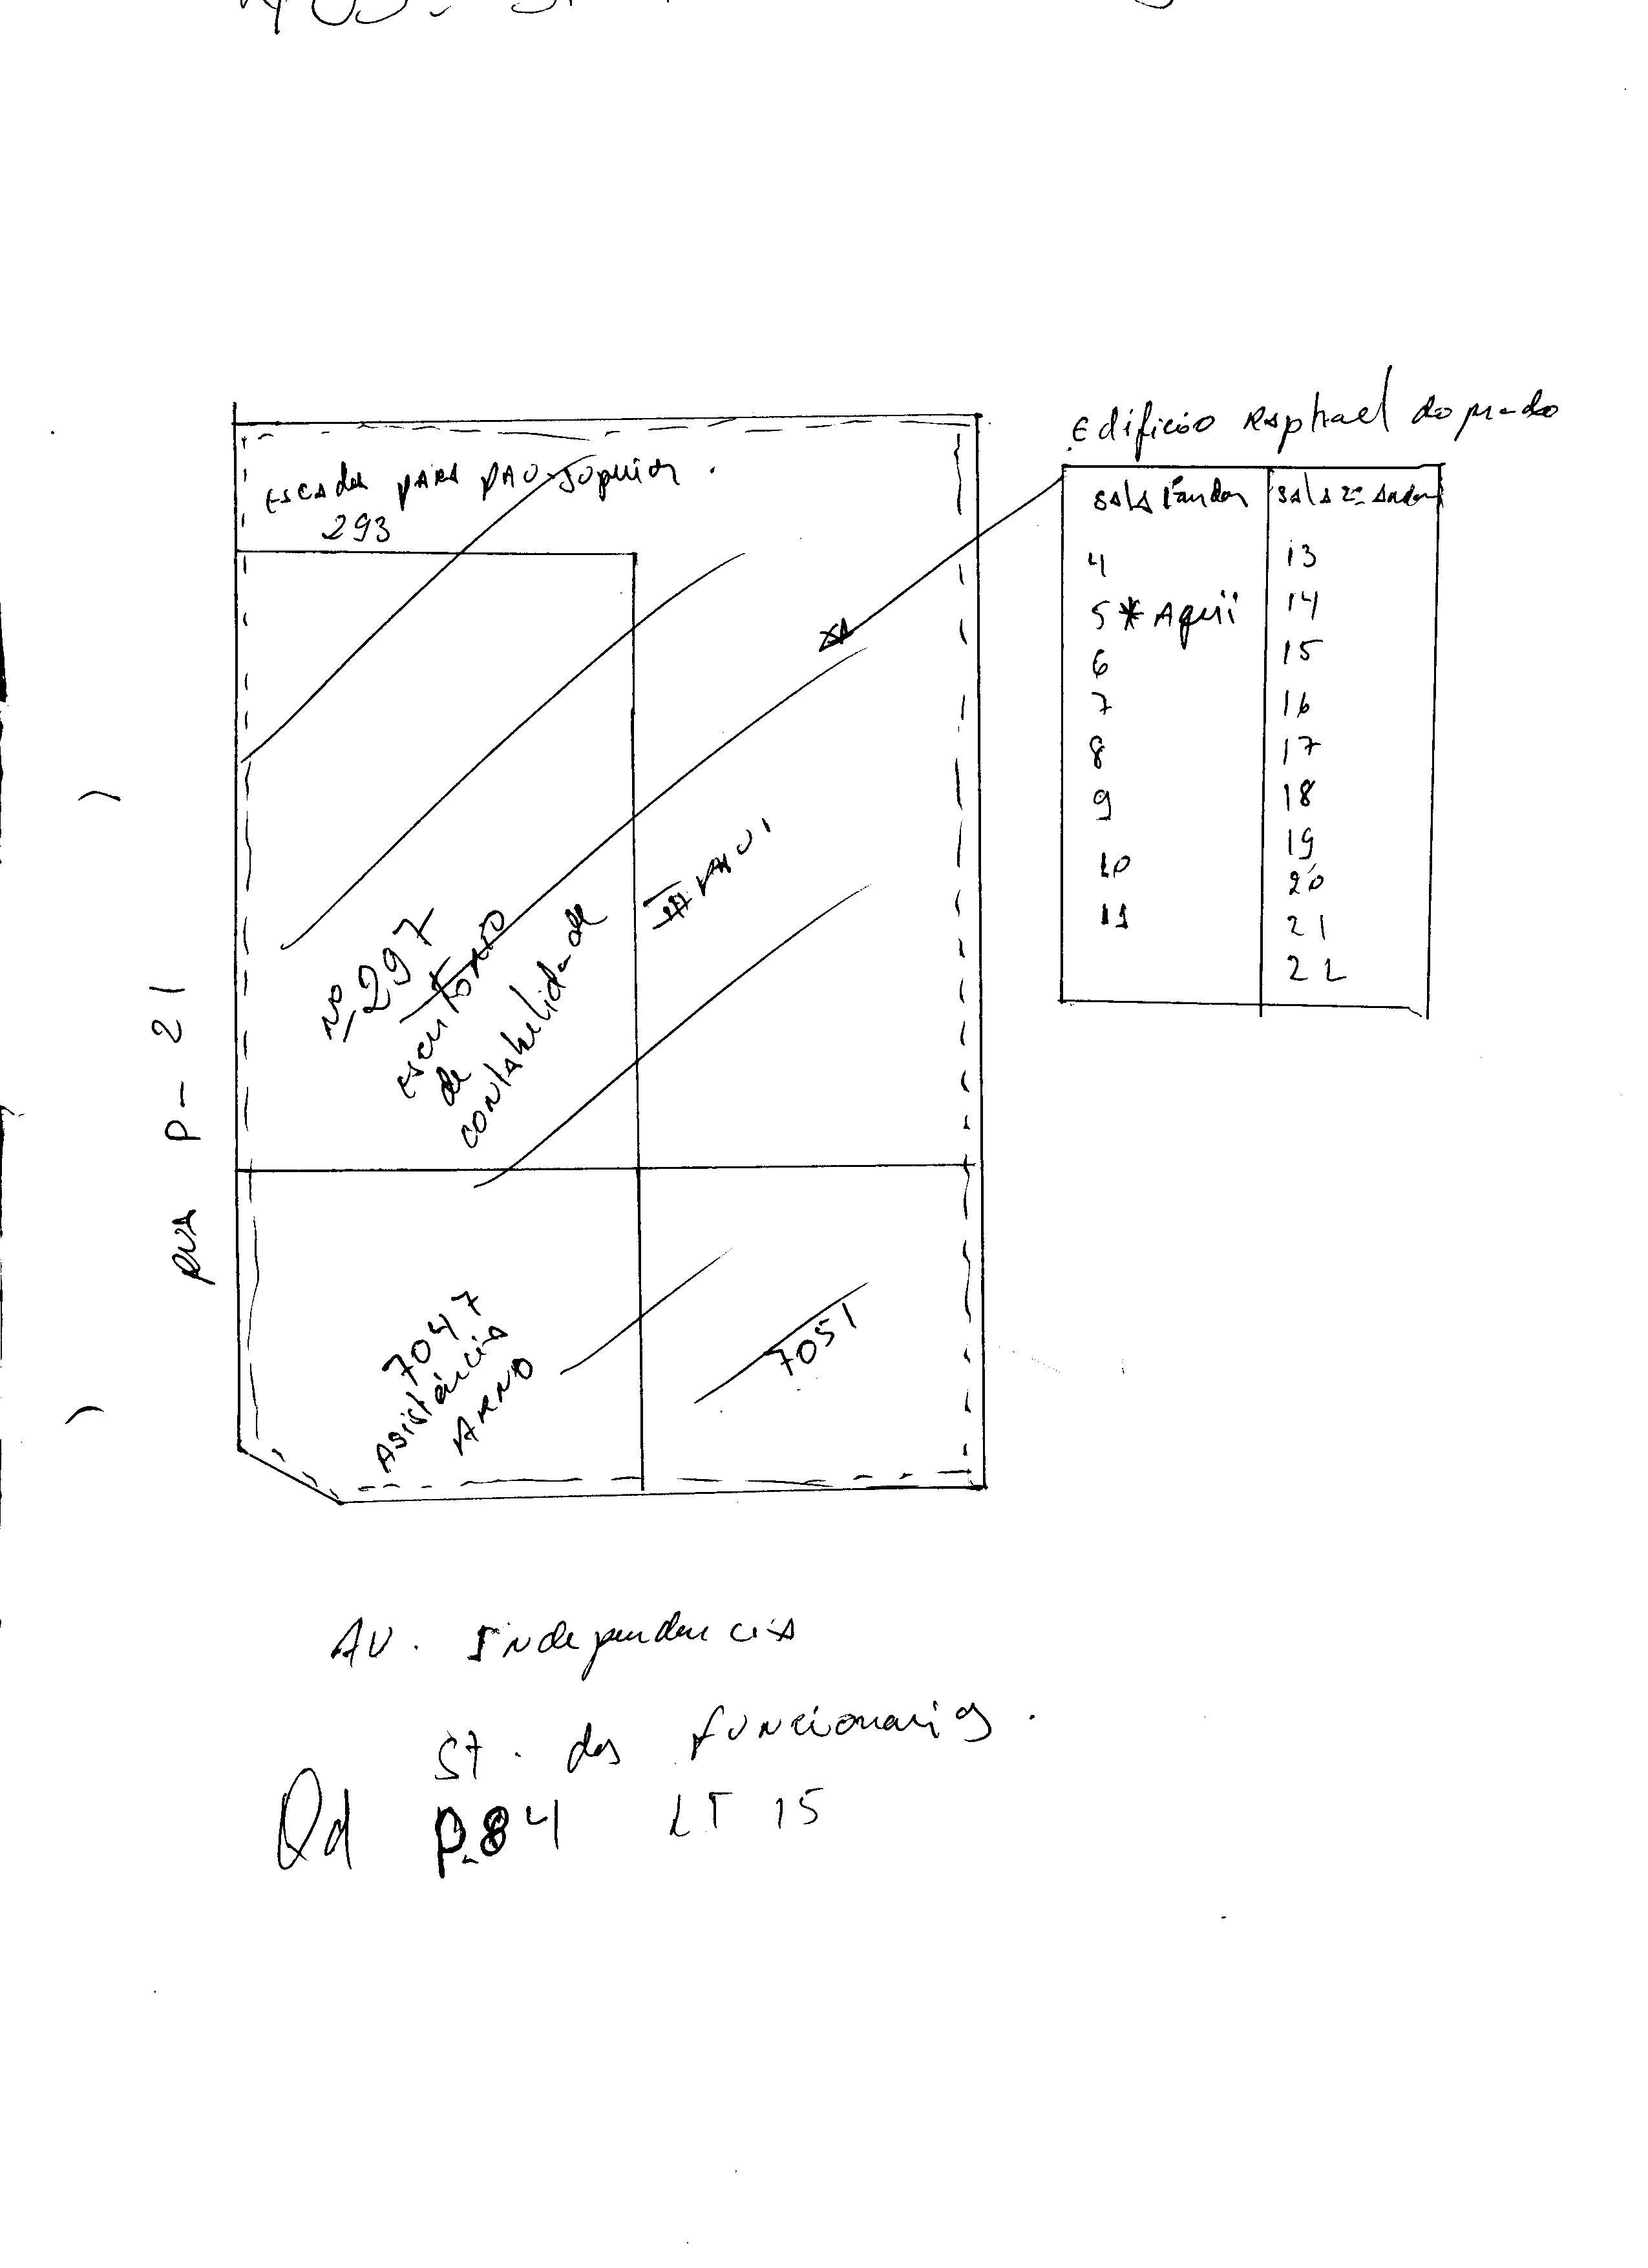 Edificio Raphael do prado
Escada para pav superior.
293
sala 1º andar
sala 2º andar
4
5 * Aqui
6
7
8
9
10
11
13
14
15
16
17
18
19
20
21
22
nº 297
escritorio
de
contabelidade
RUA P-21
7047
Asistência
ARNO
7051
AV. Independencia
St. dos funcionarios.
Qd P.84 LT 15